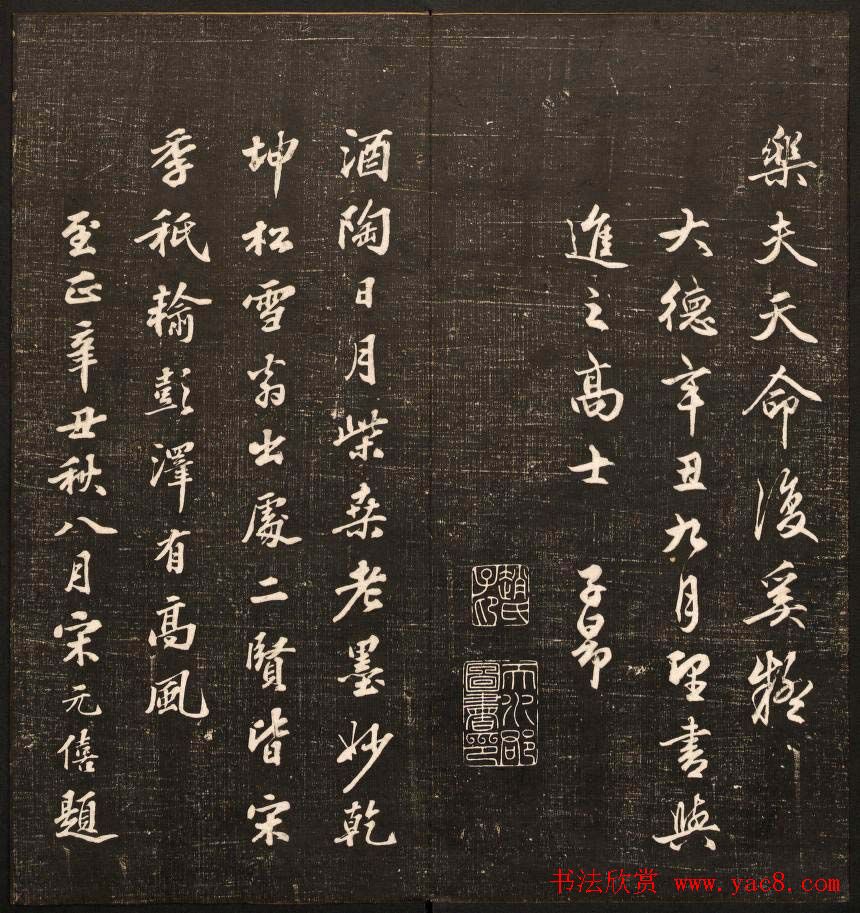 樂夫天命復奚疑
大德辛丑九月望書與
進之高士 子昂
趙氏子昂
天水郡圖書印
酒陶日月柴桑老墨妙乾
坤松雪翁出處二賢皆宋
季秪輸彭澤有高風
至正辛丑秋八月宋元僖題
书法欣赏 www.yac8.com